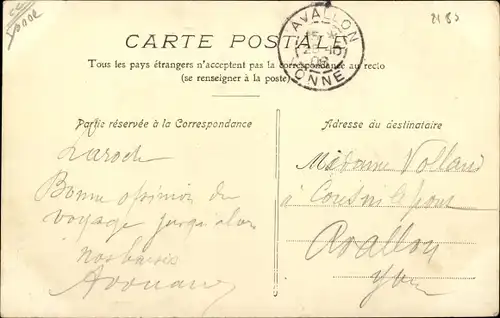 2183
CARTE POSTALE
AVALLON
YONNE
Tous les pays étrangers n'acceptent pas la correspondance au recto
(se renseigner à la poste)
Partie réservée à la Correspondance
Laroch
Bonne opinion du
voyage jusqu'alors
nos baisers
Adresse du destinataire
Madame Volland
à
Avallon
Yonne